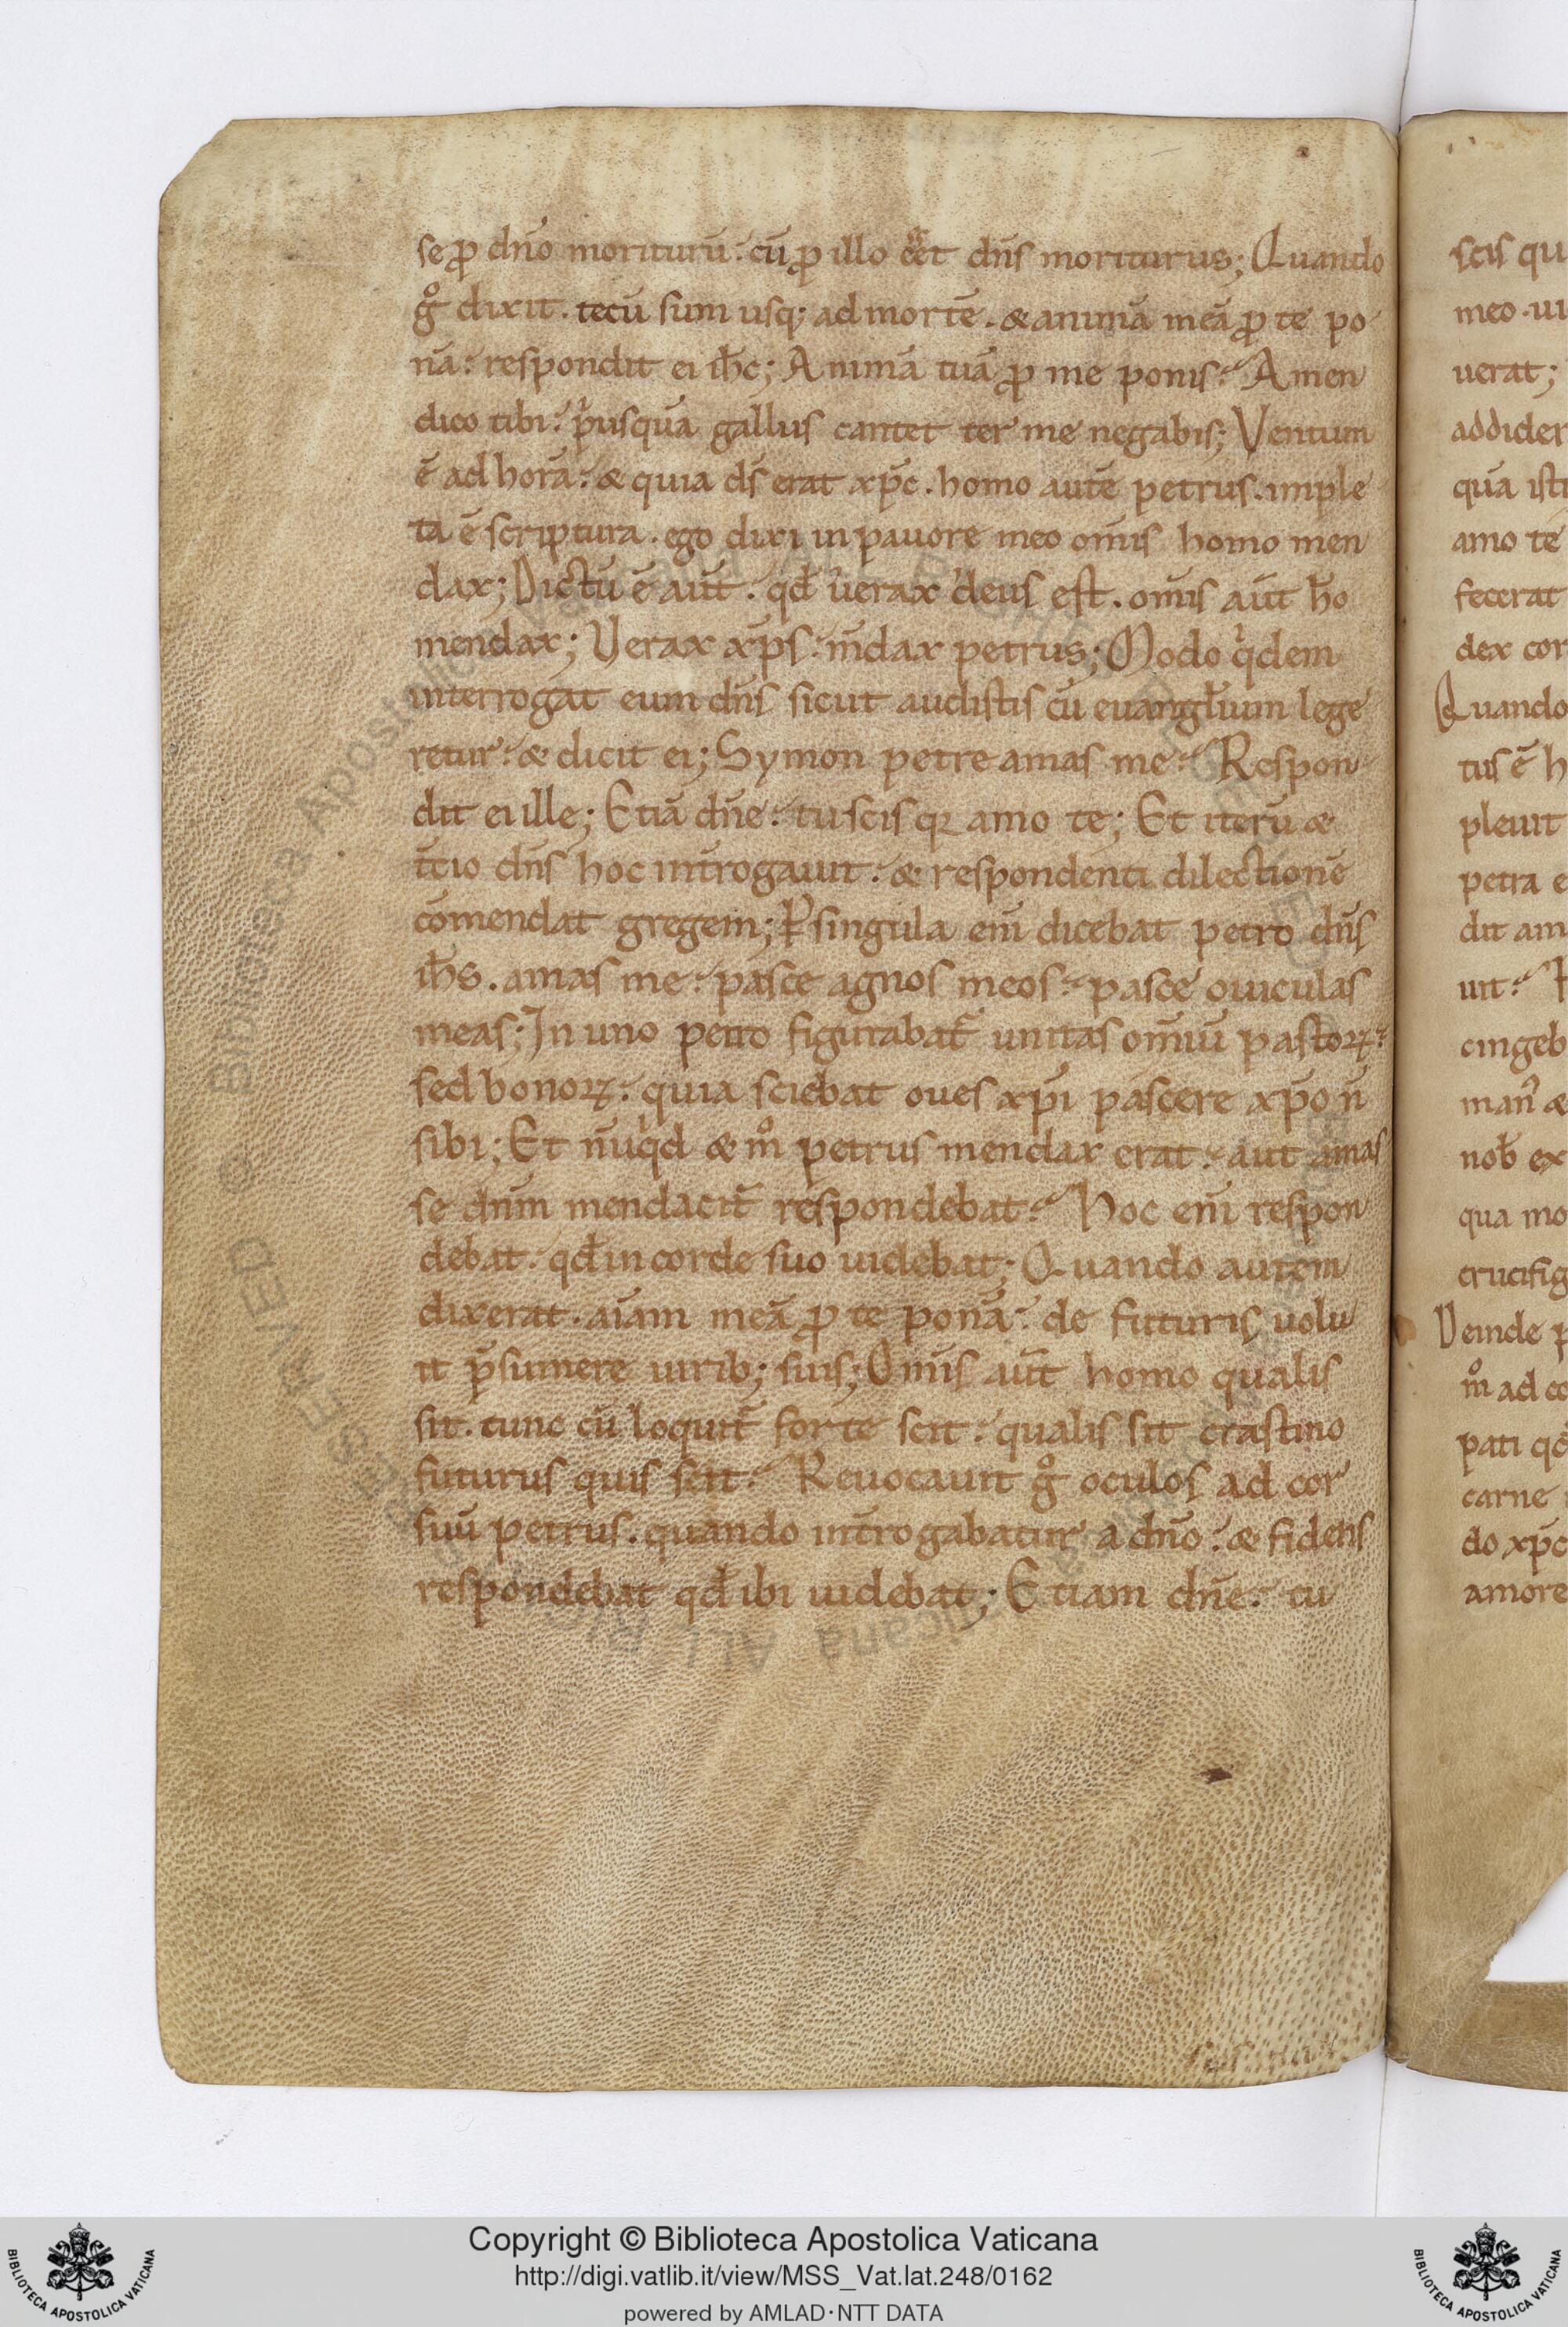 se ꝓ dño moriturū. cū ꝓ illo eēt dñs moriturus; Quando
gͦ dixit. tecū sum usq; ad mortē. & animā meā ꝓ te po
nā. respondit ei ih̄c; Animā tuā ꝓ me ponis? Amen
dico tibi. pͥusquā gallus cantet ter me negabis; Ventum
ē ad horā. & quia ds̄ erat xp̄c. homo autē petrus. imple
ta ē scriptura. ego dixi in pauore meo om̄is homo men
dax; Dictū ē aut̄. qd̄ uerax deus est. om̄is aūt h̄o
mendax; Verax xp̄s. m̄dax petrus; Modo qͥdem
interrogat eum dñs sicut audistis cū euangl̄ium lege
retur. & dicit ei; Symon petre amas me? Respon
dit ei ille; Etiā dñe. tu scis qꝛ amo te; Et iterū &
t̄cio dñs hoc int̄rogauit. & respondenti dilectionē
cōmendat gregem; Ꝑ singula eni̅ dicebat petro dñs
ih̄s. amas me? pasce agnos meos. pasce ouiculas
meas; In uno petro figurabat᷑ unitas om̄iū pastoꝝ.
sed bonoꝝ. quia sciebat oues xp̄i pascere xp̄o n̄
sibi; Et nūqͥd & mͦ petrus mendax erat. aut amas
se dn̄m mendacit᷑ respondebat? Hoc eni̅ respon
debat. qd̄ in corde suo uidebat; Quando autem
dixerat. aīam meā ꝓ te ponā. de futuris uolu
it p̄sumere uirib; suis; Om̄is aūt homo qualis
sit. tunc cū loquit᷑ forte scit. qualis sit crastino
futurus quis scit? Reuocauit gͦ oculos ad cor
suū petrus. quando int̄rogabatur a dño. & fidens
respondebat qd̄ ibi uidebat; Etiam dñe. tu
scis qu
meo. ui
uerat;
addider
quā isti
amo te
fecerat
dex cor
Quando
tus ē h
pleuit
petra e
dit am
uit?
cingeb
man᷑ &
nob̄ ex
qua mo
crucifig
Deinde p
mͦ ad co
pati qd̄
carne
do xp̄c
amore
Copyright © Biblioteca Apostolica Vaticana
http://digi.vatlib.it/view/MSS_Vat.lat.248/0162
powered by AMLAD·NTT DATA
BIBLIOTECA APOSTOLICA VATICANA
BIBLIOTECA APOSTOLICA VATICANA